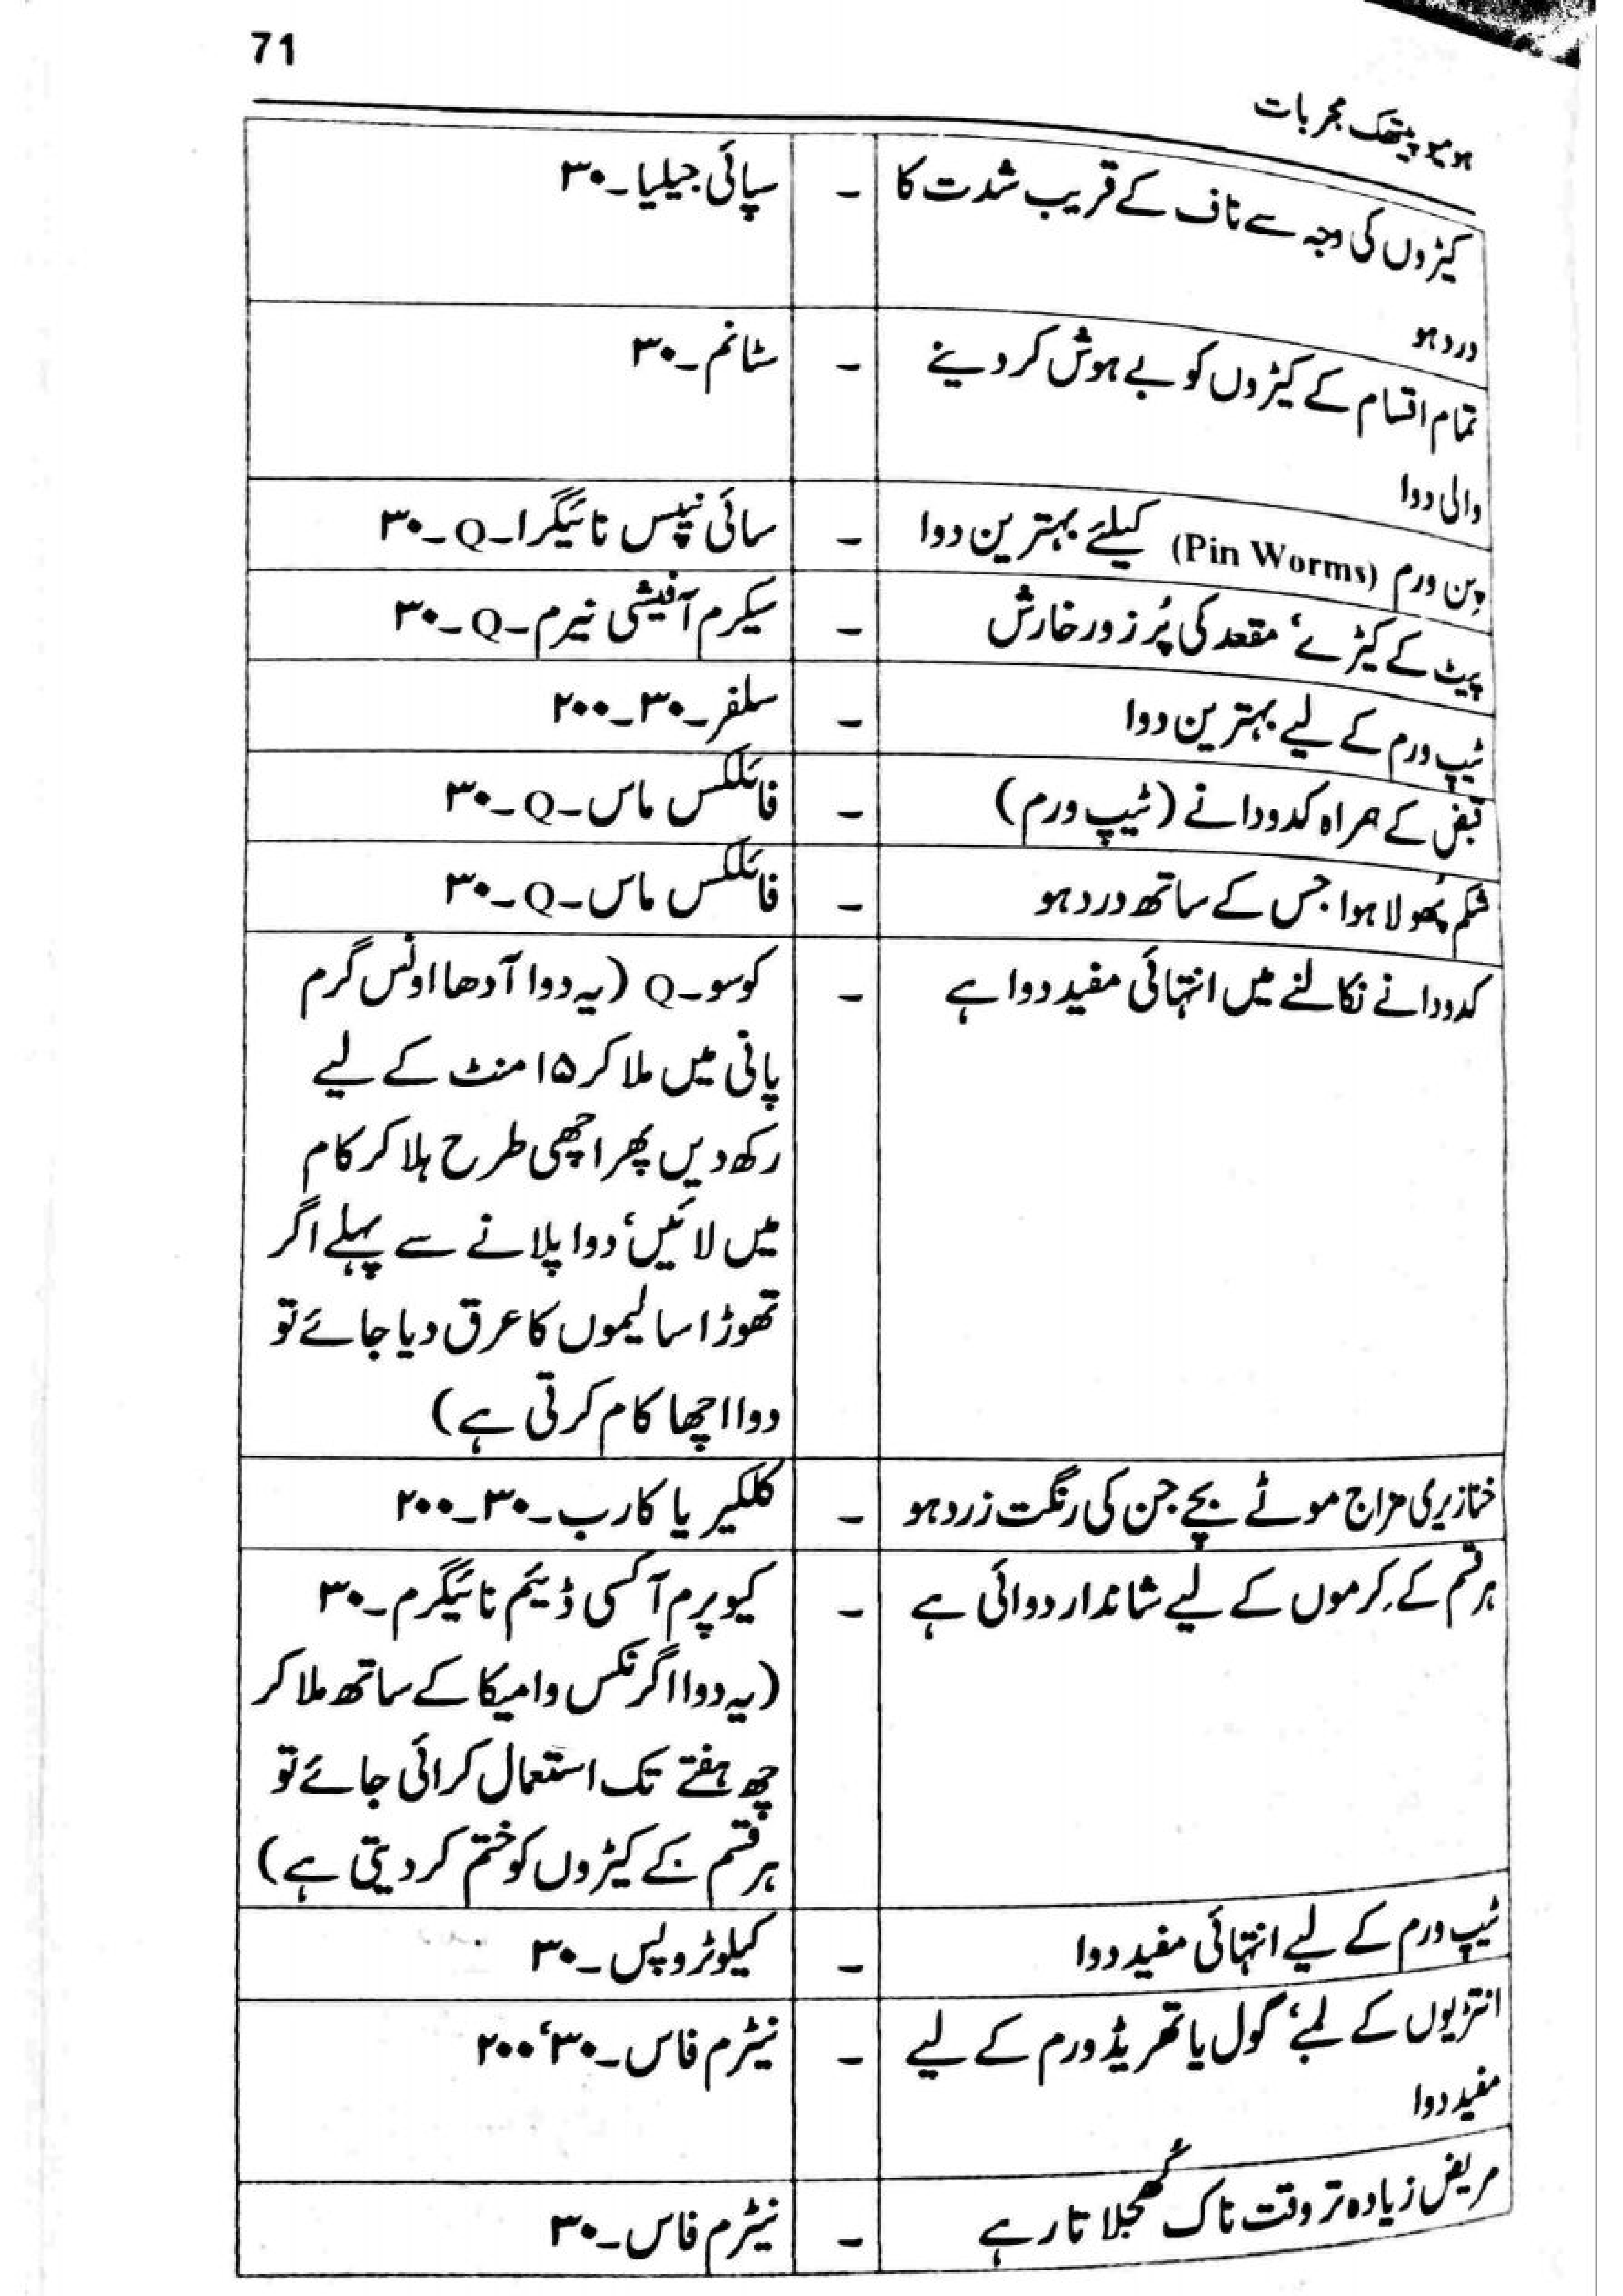 71
ہومیوپیتھک مجربات
کیڑوں کی وجہ سے ناف کے قریب شدت کا - سپائی جیلیا۔۳۰
درد ہو
تمام اقسام کے کیڑوں کو بے ہوش کر دینے - سٹانم۔۳۰
والی دوا
پن ورم (Pin Worms) کیلئے بہترین دوا - سائی نیپس نائیگرا۔Q۔۳۰
پیٹ کے کیڑے، مقعد کی پُر زور خارش - سیکرم آفیشی نیرم۔Q۔۳۰
ٹیپ ورم کے لیے بہترین دوا - سلفر۔۳۰۔۲۰۰
قبض کے ہمراہ کدو دانے (ٹیپ ورم) - فائلکس ماس۔Q۔۳۰
شکم پُھولا ہوا جس کے ساتھ درد ہو - فائلکس ماس۔Q۔۳۰
کدو دانے نکالنے میں انتہائی مفید دوا ہے - کوسو۔Q (یہ دوا آدھا اونس گرم
پانی میں ملا کر ۱۵ منٹ کے لیے
رکھ دیں پھر اچھی طرح ہلا کر کام
میں لائیں، دوا پلانے سے پہلے اگر
تھوڑا سا لیموں کا عرق دیا جائے تو
دوا اچھا کام کرتی ہے)
خنازیری مزاج موٹے بچے جن کی رنگت زرد ہو - کلکیر یا کارب۔۳۰۔۲۰۰
ہر قسم کے کِرموں کے لیے شاندار دوائی ہے - کیوپرم آکسی ڈیئم نائیگرم۔۳۰
(یہ دوا اگر نکس وامیکا کے ساتھ ملا کر
چھ ہفتے تک استعمال کرائی جائے تو
ہر قسم کے کیڑوں کو ختم کر دیتی ہے)
ٹیپ ورم کے لیے انتہائی مفید دوا - کیلوٹروپس۔۳۰
انتڑیوں کے لمبے، گول یا تھریڈ ورم کے لیے - نیٹرم فاس۔۳۰،۲۰۰
مفید دوا
مریض زیادہ تر وقت ناک کُھجلاتا رہے - نیٹرم فاس۔۳۰